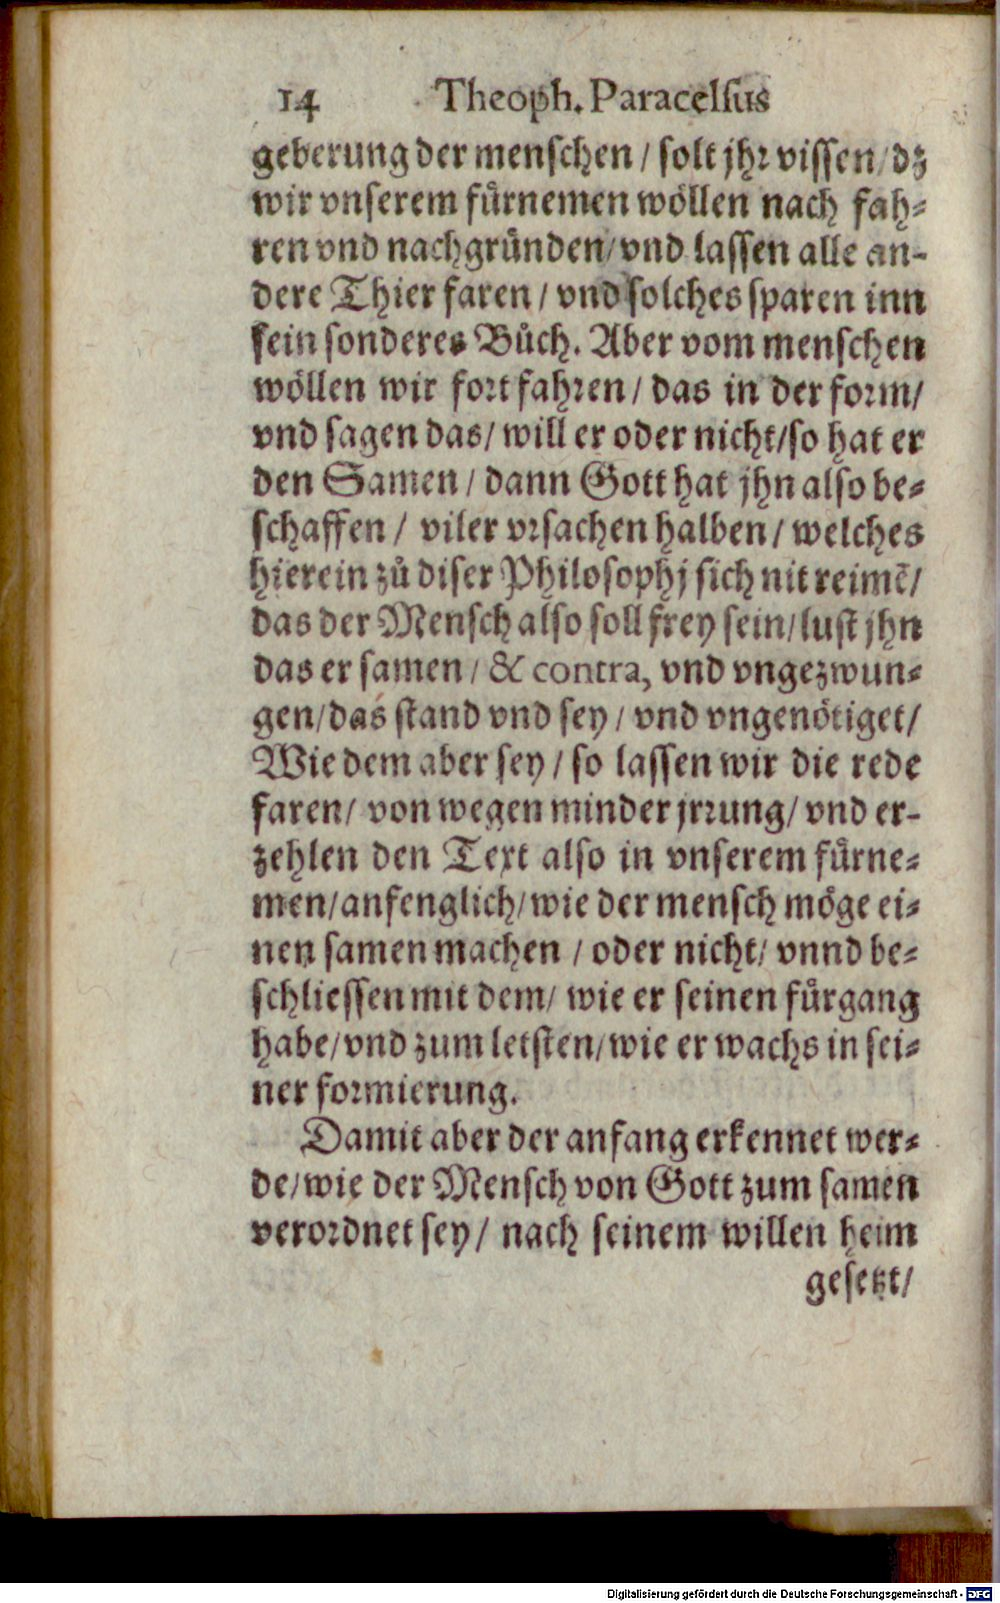 14 Theoph. Paracelsus
geberung der menschen / solt jhr vissen / dz
wir vnserem fürnemen wöllen nach fah-
ren vnd nachgründen / vnd lassen alle an-
dere Thier faren / vnd solches sparen inn
sein sonderes Bůch. Aber vom menschen
wöllen wir fort fahren / das in der form /
vnd sagen das / will er oder nicht / so hat er
den Samen / dann Gott hat jhn also be-
schaffen / viler vrsachen halben / welches
hierein zů diser Philosophj sich nit reimẽ /
das der Mensch also soll frey sein / lust jhn
das er samen / & contra, vnd vngezwun-
gen / das stand vnd sey / vnd vngenötiget /
Wie dem aber sey / so lassen wir die rede
faren / von wegen minder jrrung / vnd er-
zehlen den Text also in vnserem fürne-
men / anfenglich / wie der mensch möge ei-
nen samen machen / oder nicht / vnnd be-
schliessen mit dem / wie er seinen fürgang
habe / vnd zum letsten / wie er wachs in sei-
ner formierung.
Damit aber der anfang erkennet wer-
de / wie der Mensch von Gott zum samen
verordnet sey / nach seinem willen heim
gesetzt /
Digitalisierung gefördert durch die Deutsche Forschungsgemeinschaft - DFG